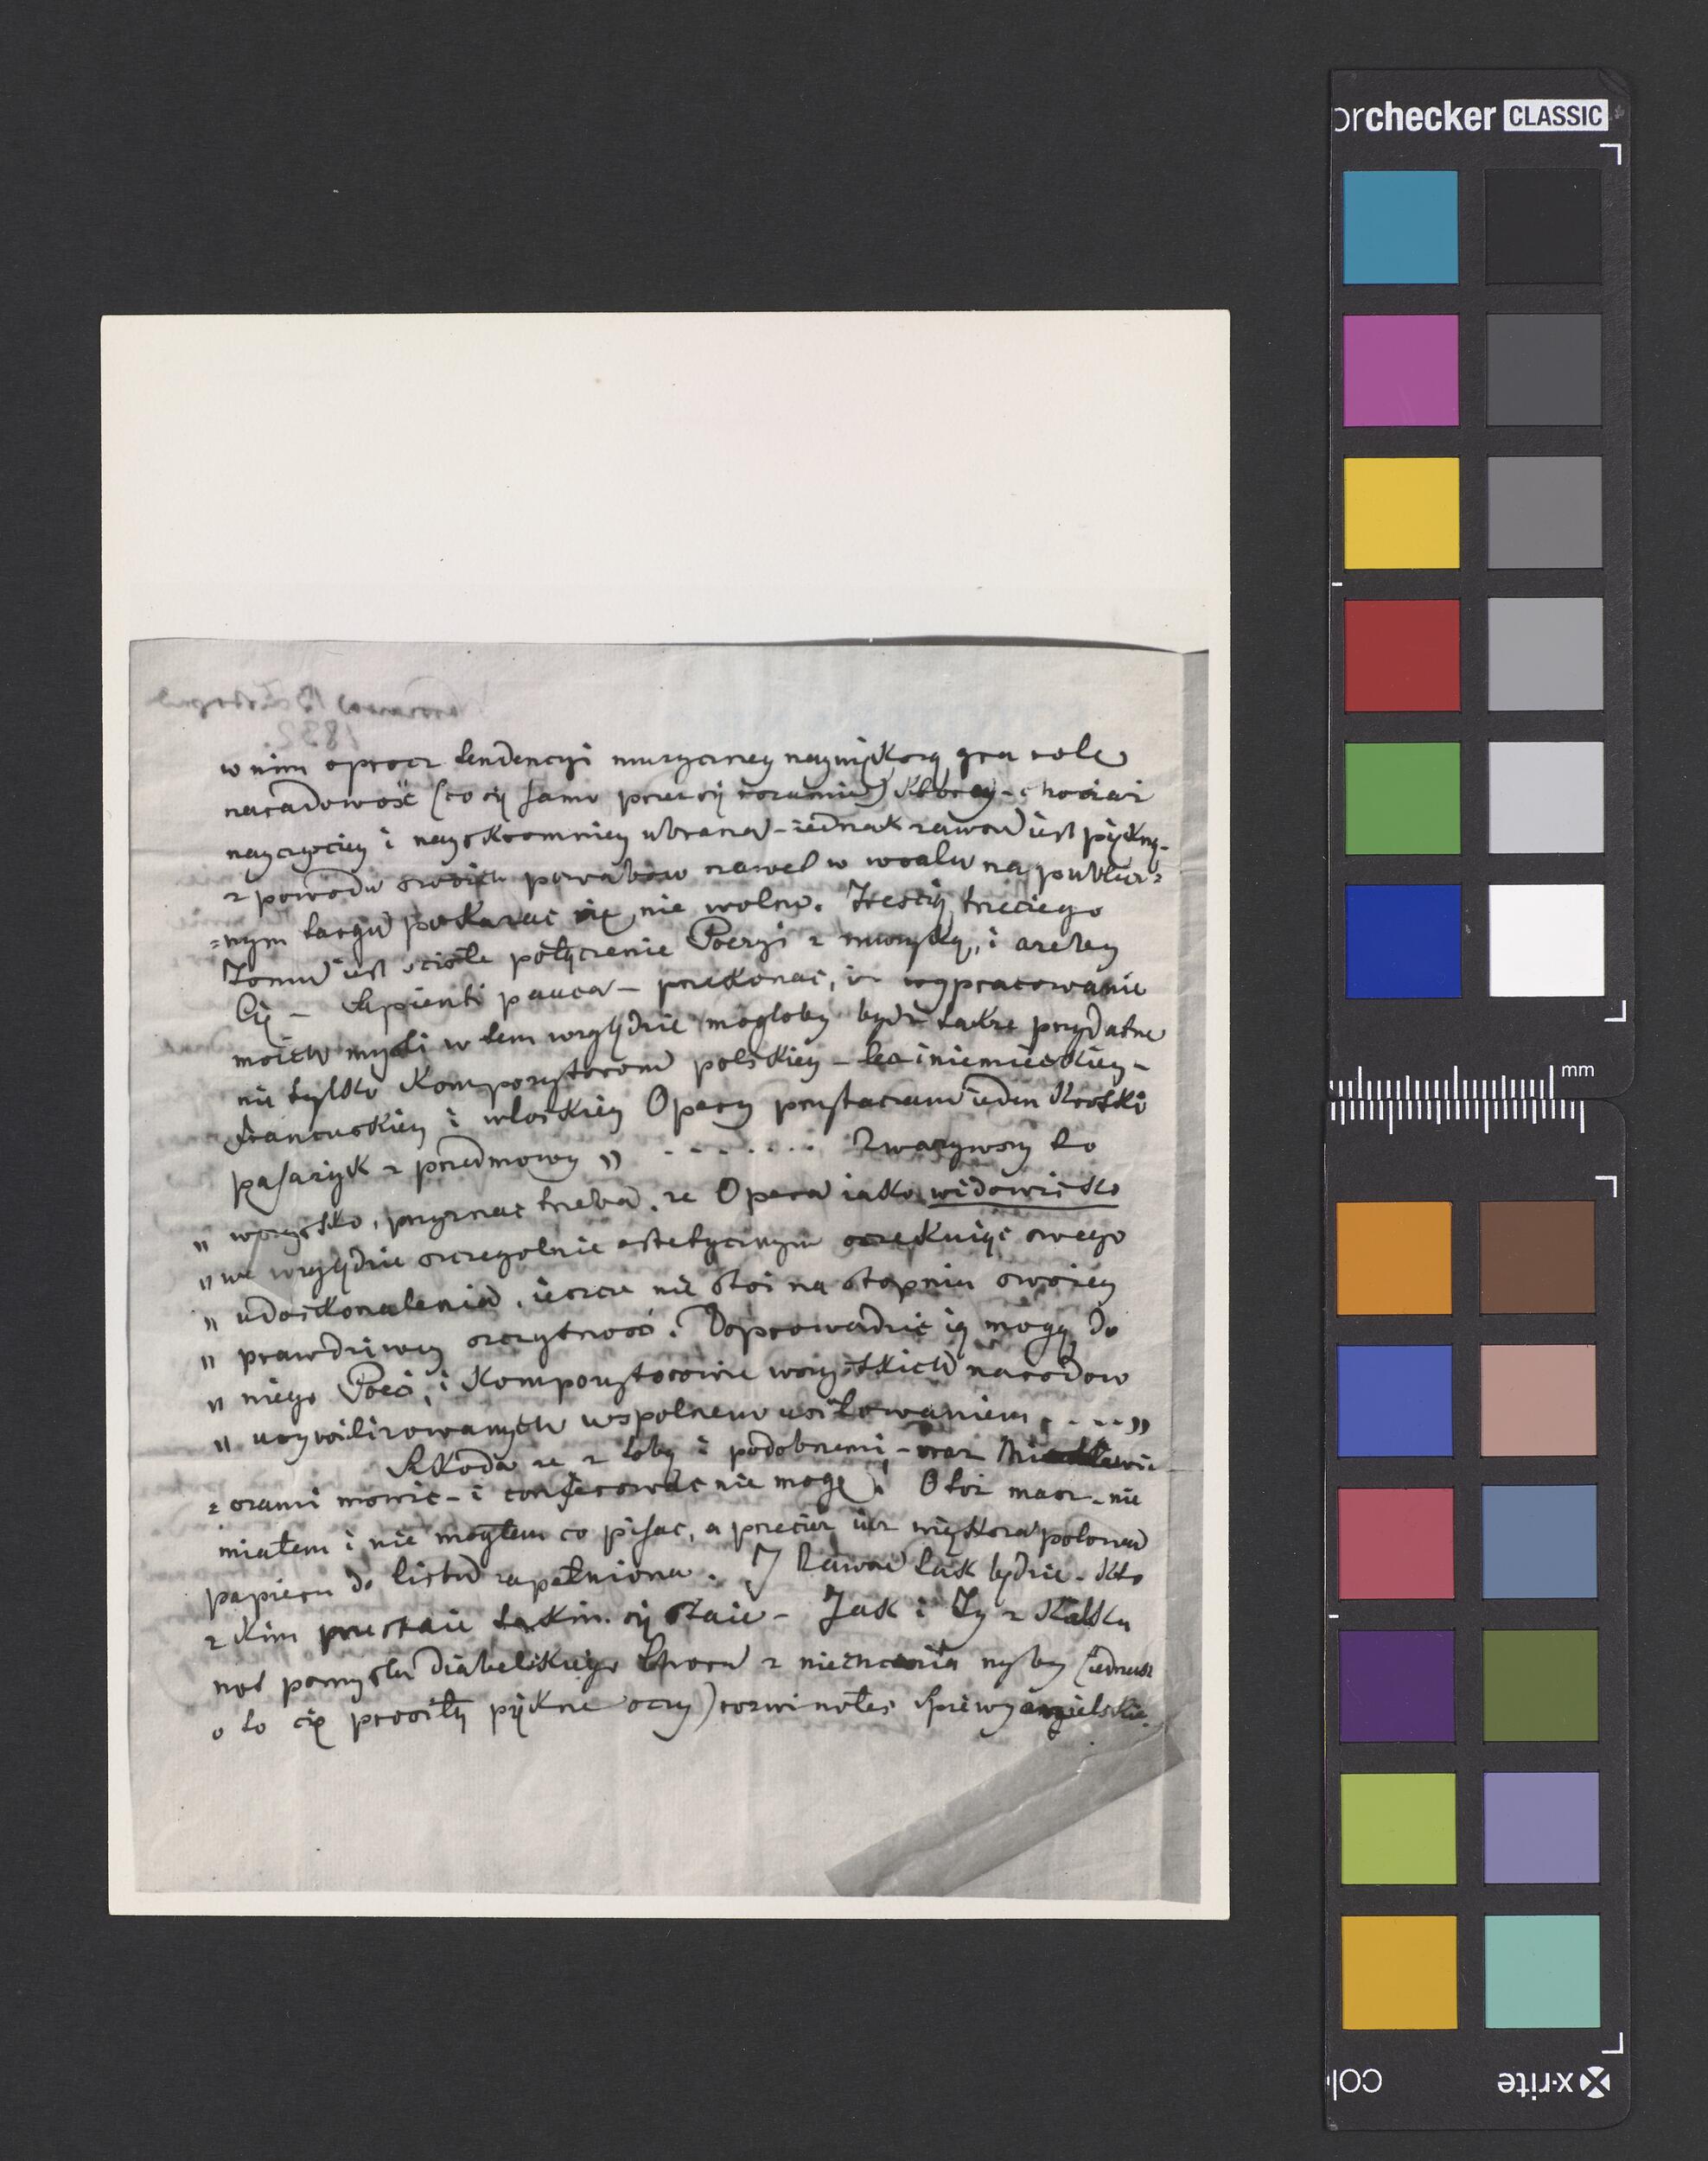 orchecker CLASSIC
1832.
w nim oprocz tendencyi muzyczney naywiększą gra rolę
narodowość (co się samo przez się rozumie) Ktorey - chociaż
nayczyściey i nayskromniey ubrana - iednak zawsze iest piękny -
z powodu swoich powabow nawet w woalu na publicz=
=nym targu pokazać się nie wolno. Treścią trzeciego
Tomu iest ścisłe połączenie Poezyi z muzyką, i ażeby
Cię - Sapienti pauca - przekonać, iż wypracowanie
moich myśli w tem względzie mogłoby bydź także przydatne
nie tylko Kompozytorom polskiey - lecz i niemieckiey -
francuskiey i włoskiey Opery przytaczam ieden Krotki
pasażyk z przedmowy „ ....... Zważywszy to
„ wszystko, przyznać trzeba, że Opera iako widowisko
„ we względzie szczegolnie estetycznym oczekuiąc swego
„ udoskonalenia, ieszcze nie stoi na stopniu swoiey
„ prawdziwey szczytności. Doprowadzić ią mogą do
„ niego Poeci, i Kompozytorowie wszystkich narodow
„ ucywilizowanych wspolnem usiłowaniem . . . . „
Szkoda że z tobą i podobnemi - oraz
= szami mowić - i conferować nie mogę! Otoż masz - nie
miałem i nie mogłem co pisać, a przecież iuż większa połowa
papieru do listu zapełniona. I zawsze tak będzie - Kto
z Kim przestaie takim się staie - Jak i Ty z Kształtu
not pomysłu diabelskiego Choru z niechcenia nyby (iednak
o to cię prosiły piękne oczy) rozwinołeś śpiewy angielskie.
mm
x·rite
col